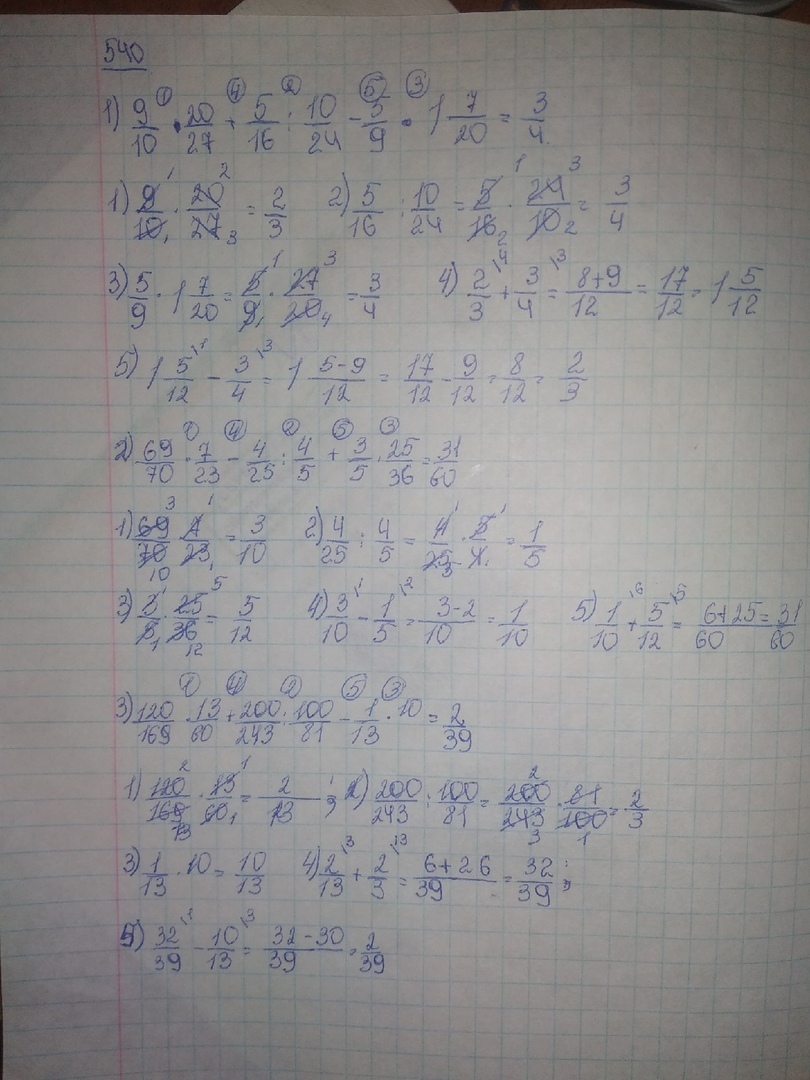 540
1) 9/10 · 20/27 + 5/16 : 10/24 - 5/9 · 1 7/20 = 3/4
1) 9/10 · 20/27 = 2/3 2) 5/16 : 10/24 = 5/16 · 24/10 = 3/4
3) 5/9 · 1 7/20 = 5/9 · 27/20 = 3/4 4) 2/3 + 3/4 = 8+9/12 = 17/12 = 1 5/12
5) 1 5/12 - 3/4 = 1 5-9/12 = 17/12 - 9/12 = 8/12 = 2/3
2) 69/70 · 7/23 - 4/25 : 4/5 + 3/5 · 25/36 = 31/60
1) 69/70 · 7/23 = 3/10 2) 4/25 : 4/5 = 4/25 · 5/4 = 1/5
3) 3/5 · 25/36 = 5/12 4) 3/10 - 1/5 = 3-2/10 = 1/10 5) 1/10 + 5/12 = 6+25/60 = 31/60
3) 120/169 · 13/60 + 200/243 : 100/81 - 1/13 · 10 = 2/39
1) 120/169 · 13/60 = 2/13 ; 2) 200/243 : 100/81 = 200/243 · 81/100 = 2/3
3) 1/13 · 10 = 10/13 4) 2/13 + 2/3 = 6+26/39 = 32/39 ;
5) 32/39 - 10/13 = 32-30/39 = 2/39